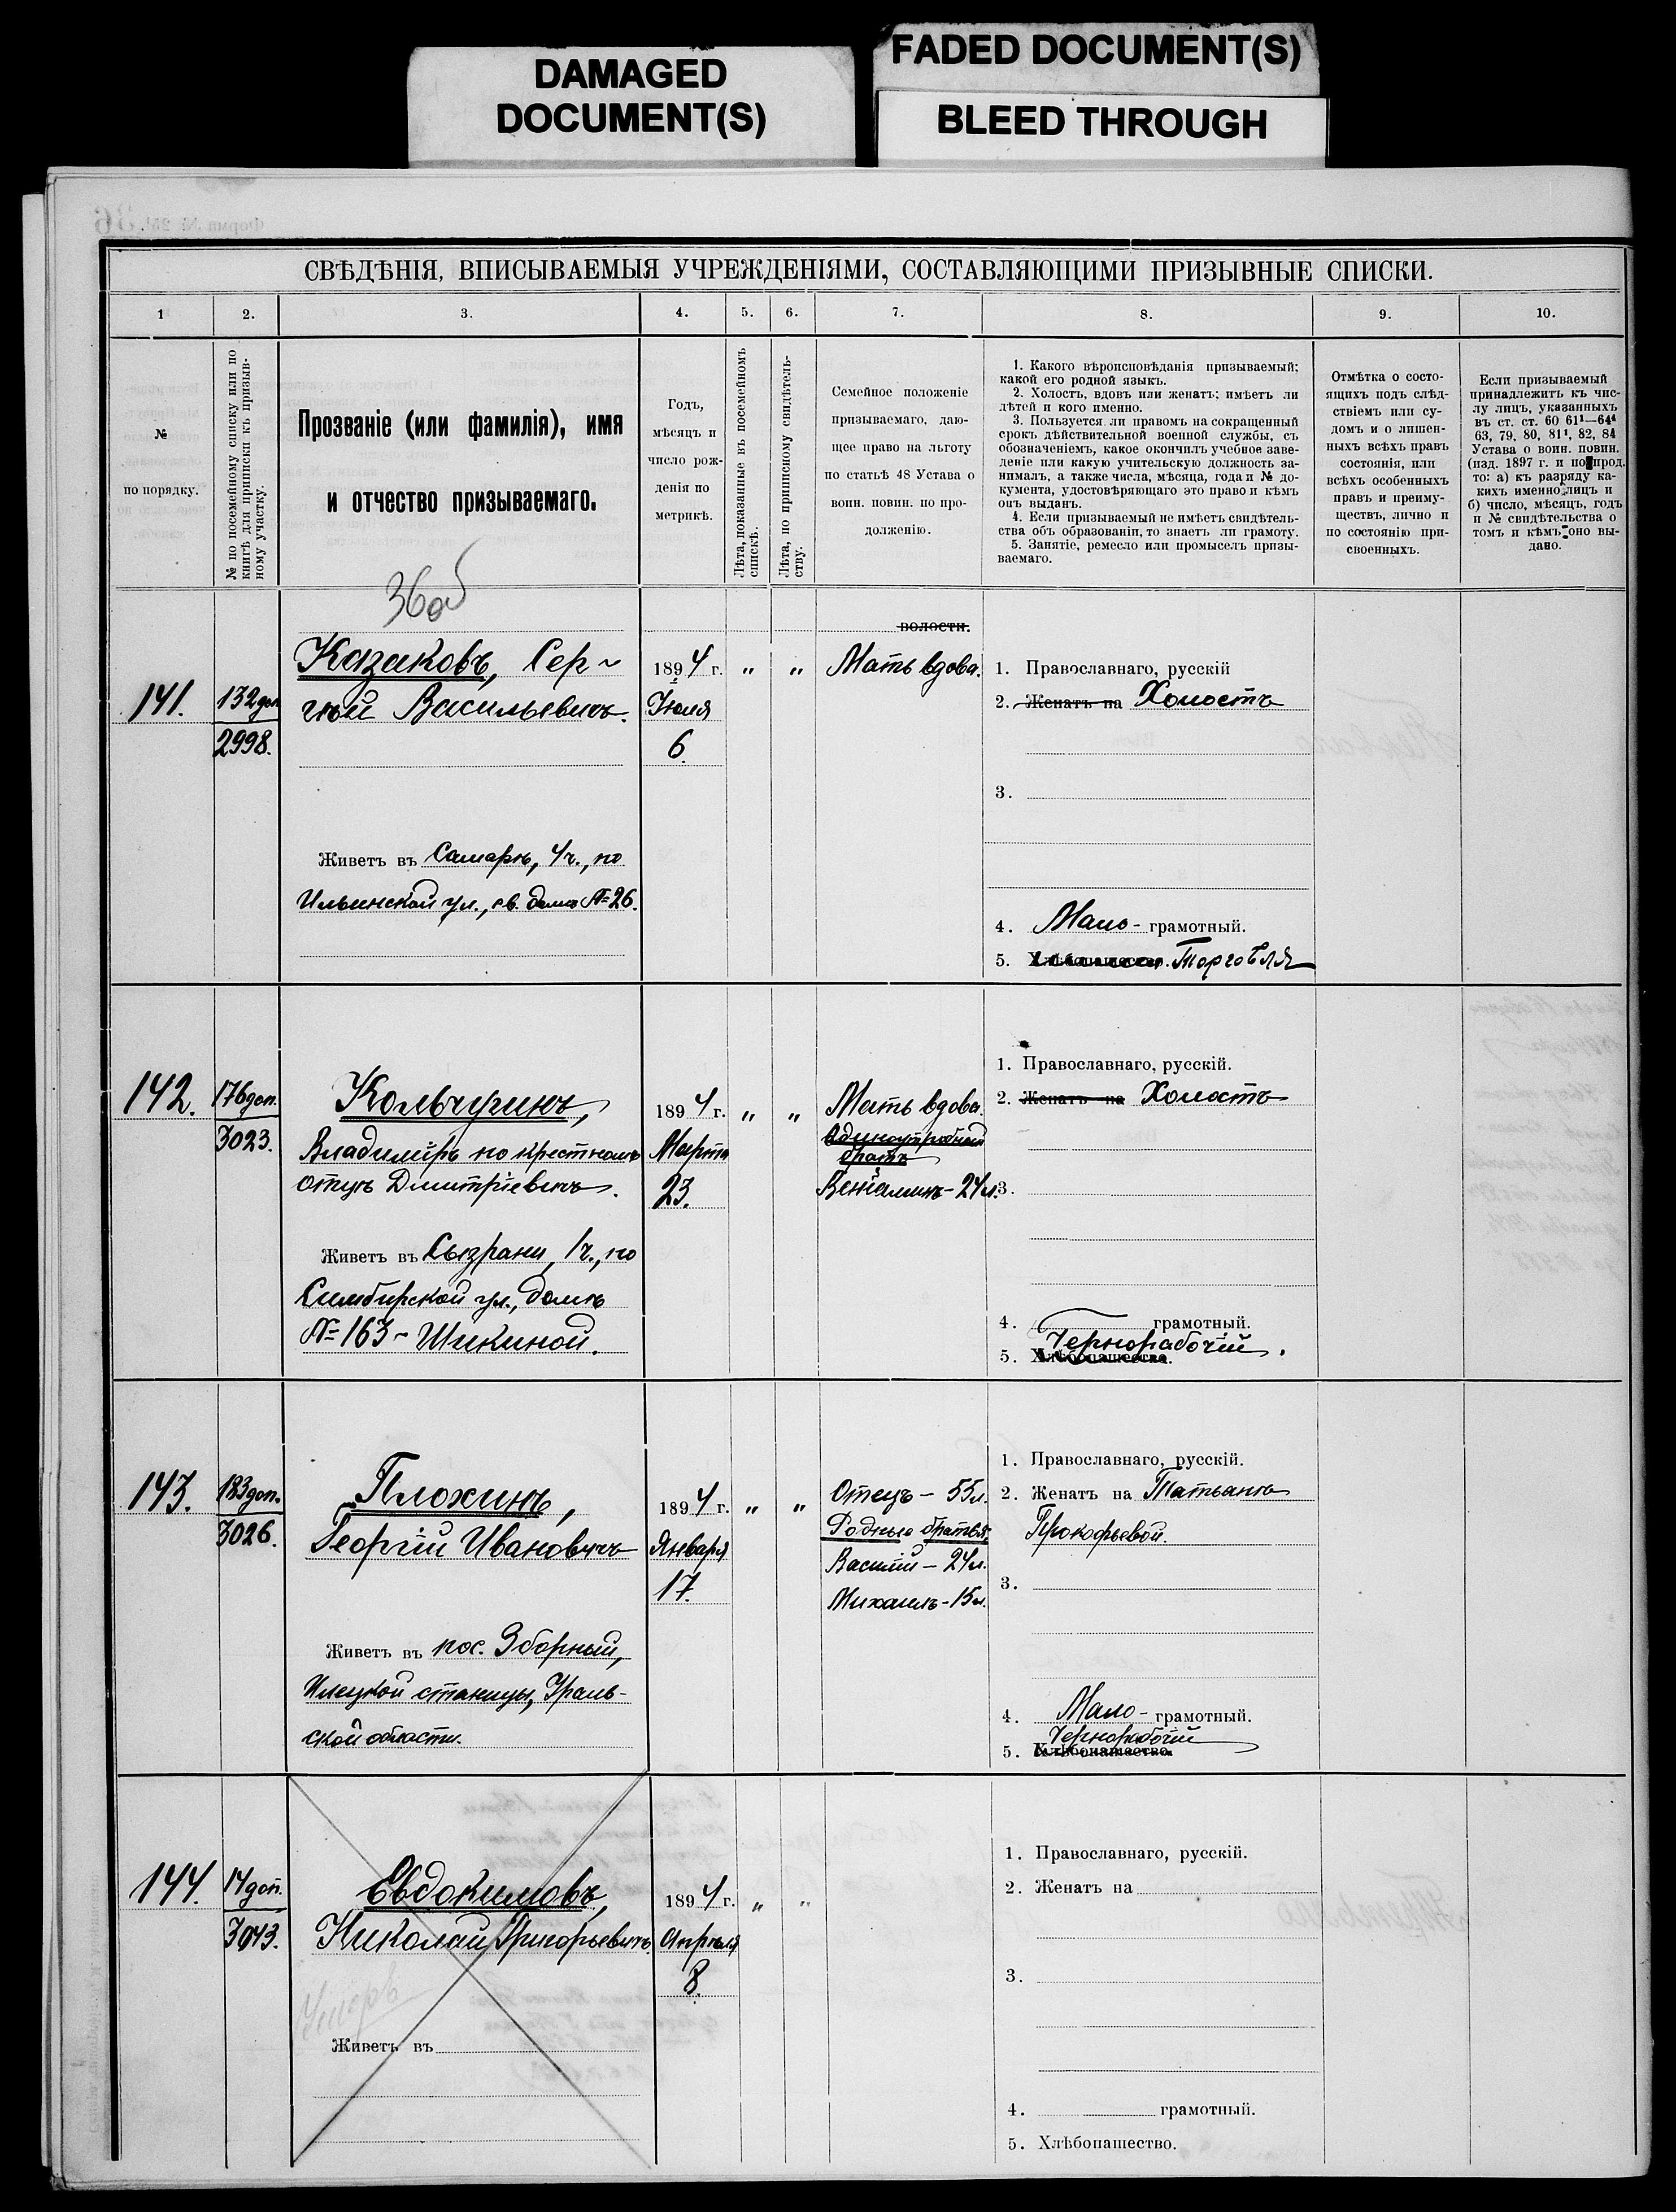 DAMAGED
DOCUMENT(S)
FADED DOCUMENT(S)
BLEED THROUGH
СВѢДѢНІЯ, ВПИСЫВАЕМЫЯ УЧРЕЖДЕНІЯМИ, СОСТАВЛЯЮЩИМИ ПРИЗЫВНЫЕ СПИСКИ.
1
2.
3.
4.
5.
6.
7.
8.
9.
10.
№
по порядку.
№ по посемейному списку или по
книгѣ для приписки къ призыв-
ному участку.
Прозваніе (или фамилія), имя
и отчество призываемаго.
Годъ,
мѣсяцъ и
число рож-
денія по
метрикѣ.
Лѣта, показанные въ посемейномъ
спискѣ.
Лѣта, по приписному свидѣтель-
ству.
Семейное положеніе
призываемаго, даю-
щее право на льготу
по статьѣ 48 Устава о
воин. повин. по про-
долженію.
1. Какого вѣроисповѣданія призываемый;
какой его родной языкъ.
2. Холостъ, вдовъ или женатъ; имѣетъ ли
дѣтей и кого именно.
3. Пользуется ли правомъ на сокращенный
срокъ дѣйствительной военной службы, съ
обозначеніемъ, какое окончилъ учебное заве-
деніе или какую учительскую должность за-
нималъ, а также числа, мѣсяца, года и № до-
кумента, удостовѣряющаго это право и кѣмъ
онъ выданъ.
4. Если призываемый не имѣетъ свидѣтель-
ства объ образованіи, то знаетъ ли грамоту.
5. Занятіе, ремесло или промыселъ призы-
ваемаго.
Отмѣтка о состо-
ящихъ подъ слѣд-
ствіемъ или су-
домъ и о лишен-
ныхъ всѣхъ правъ
состоянія, или
всѣхъ особенныхъ
правъ и преиму-
ществъ, лично и
по состоянію при-
своенныхъ.
Если призываемый
принадлежитъ къ чис-
лу лицъ, указанныхъ
въ ст. ст. 60 61¹—64⁴
63, 79, 80, 81¹, 82, 84
Устава о воин. повин.
(изд. 1897 г. и по прод.
то: а) къ разряду ка-
кихъ именно лицъ и
б) число, мѣсяцъ, годъ
и № свидѣтельства о
томъ и кѣмъ оно вы-
дано.
36об
волости.
141.
132 доп.
2998.
Казаковъ, Сер-
гѣй Васильевичъ.
1894 г.
Іюля
6.
„
„
Мать вдова.
1. Православнаго, русскій
2. Женатъ на Холостъ
3.
Живетъ въ Самарѣ, 4 ч., по
Ильинской ул., св. домъ № 26.
4. Мало- грамотный.
5. Хлѣбопашество. Торговля
142.
176 доп.
3023.
Кольчугинъ,
Владиміръ по крестному
отцу Дмитріевичъ.
1894 г.
Марта
23.
„
„
Мать вдова.
Единоутробный
братъ
Веніаминъ - 24 л.
1. Православнаго, русскій.
2. Женатъ на Холостъ
3.
Живетъ въ Сызрани, 1 ч., по
Симбирской ул., домъ
№ 163 - Шикиной.
4. грамотный.
5. Хлѣбопашество. Чернорабочій.
143.
183 доп.
3026.
Плохинъ,
Георгій Ивановичъ
1894 г.
Января
17.
„
„
Отецъ - 55 л.
Родные братья:
Василій - 24 л.
Михаилъ - 15 л.
1. Православнаго, русскій.
2. Женатъ на Татьянѣ
Прокофьевой.
3.
Живетъ въ пос. Зборный,
Илецкой станицы, Ураль-
ской области.
4. Мало- грамотный.
5. Хлѣбопашество. Чернорабочій
144.
14 доп.
3043.
Евдокимовъ,
Николай Григорьевичъ.
1894 г.
Апрѣля
8.
„
„
Умеръ
Живетъ въ
1. Православнаго, русскій.
2. Женатъ на
3.
4. грамотный.
5. Хлѣбопашество.